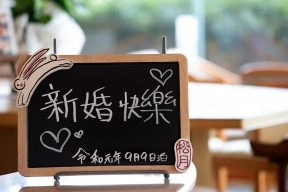 新婚快樂
令和元年9月9日泊
松月